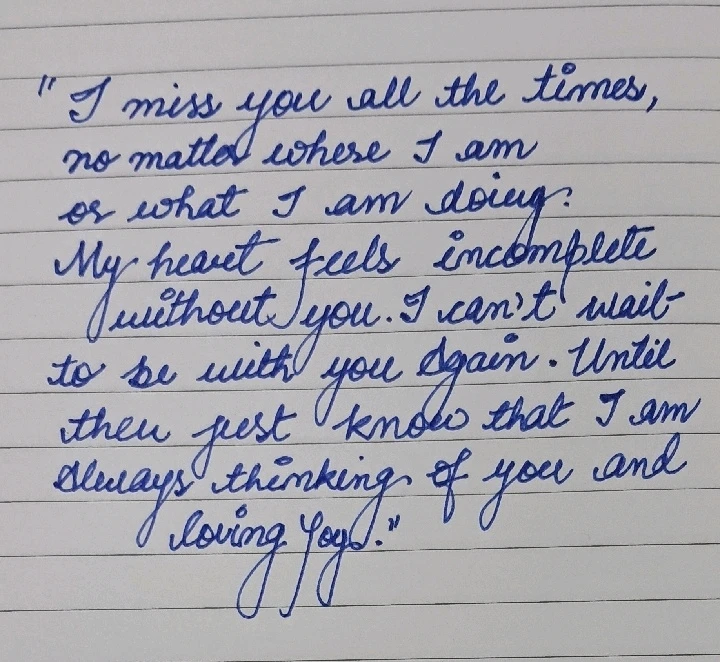 "I miss you all the times,
no matter where I am
or what I am doing.
My heart feels incomplete
without you. I can't wait
to be with you Again. Until
then just know that I am
Always thinking of you and
loving you."